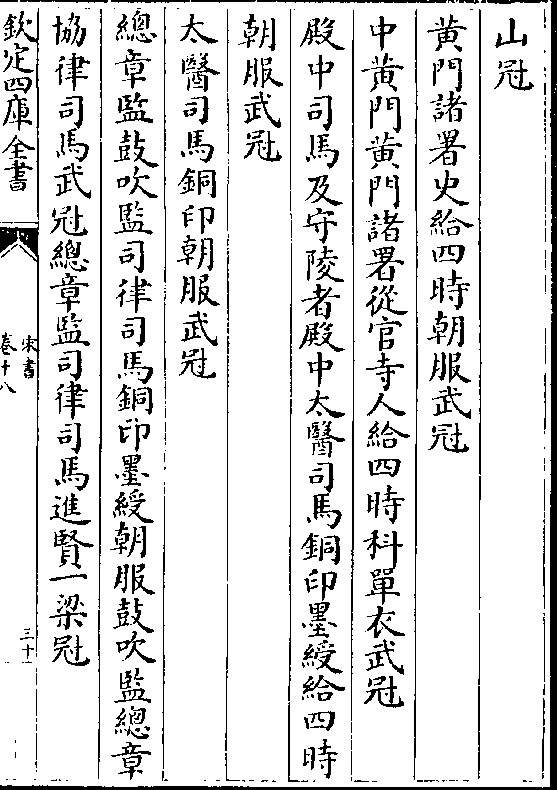 山冠
黄門諸署史給四時朝服武冠
中黄門黄門諸署從官寺人給四時科單衣武冠
殿中司馬及守陵者殿中太醫司馬銅印墨綬給四時
朝服武冠
太醫司馬銅印朝服武冠
總章監鼓吹監司律司馬銅印墨綬朝服鼓吹監總章
協律司馬武冠總章監司律司馬進賢一梁冠
欽定四庫全書
宋書
卷十八
三十